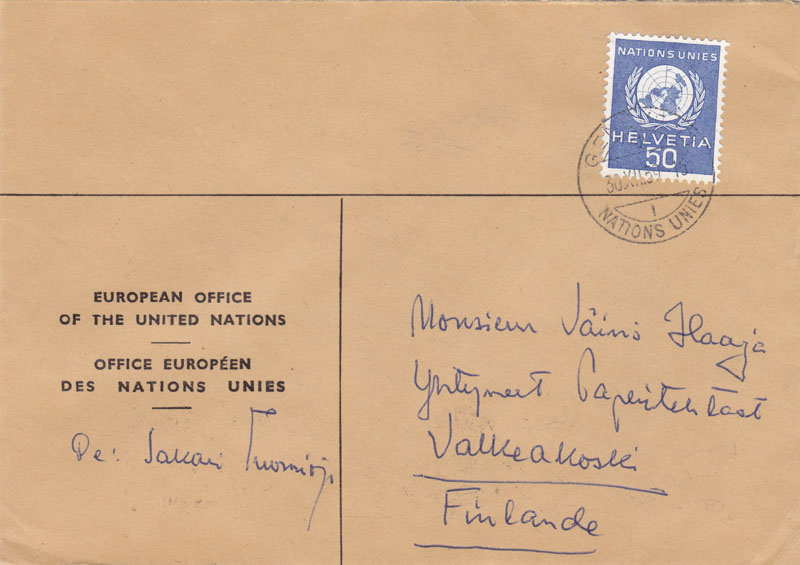 NATIONS UNIES
HELVETIA
50
30.XII.59
1
NATIONS UNIES
EUROPEAN OFFICE
OF THE UNITED NATIONS
OFFICE EUROPÉEN
DES NATIONS UNIES
De: Sakari Tuomioja
Monsieur Väinö Haaja
Yhtyneet Paperitehtaat
Valkeakoski
Finlande